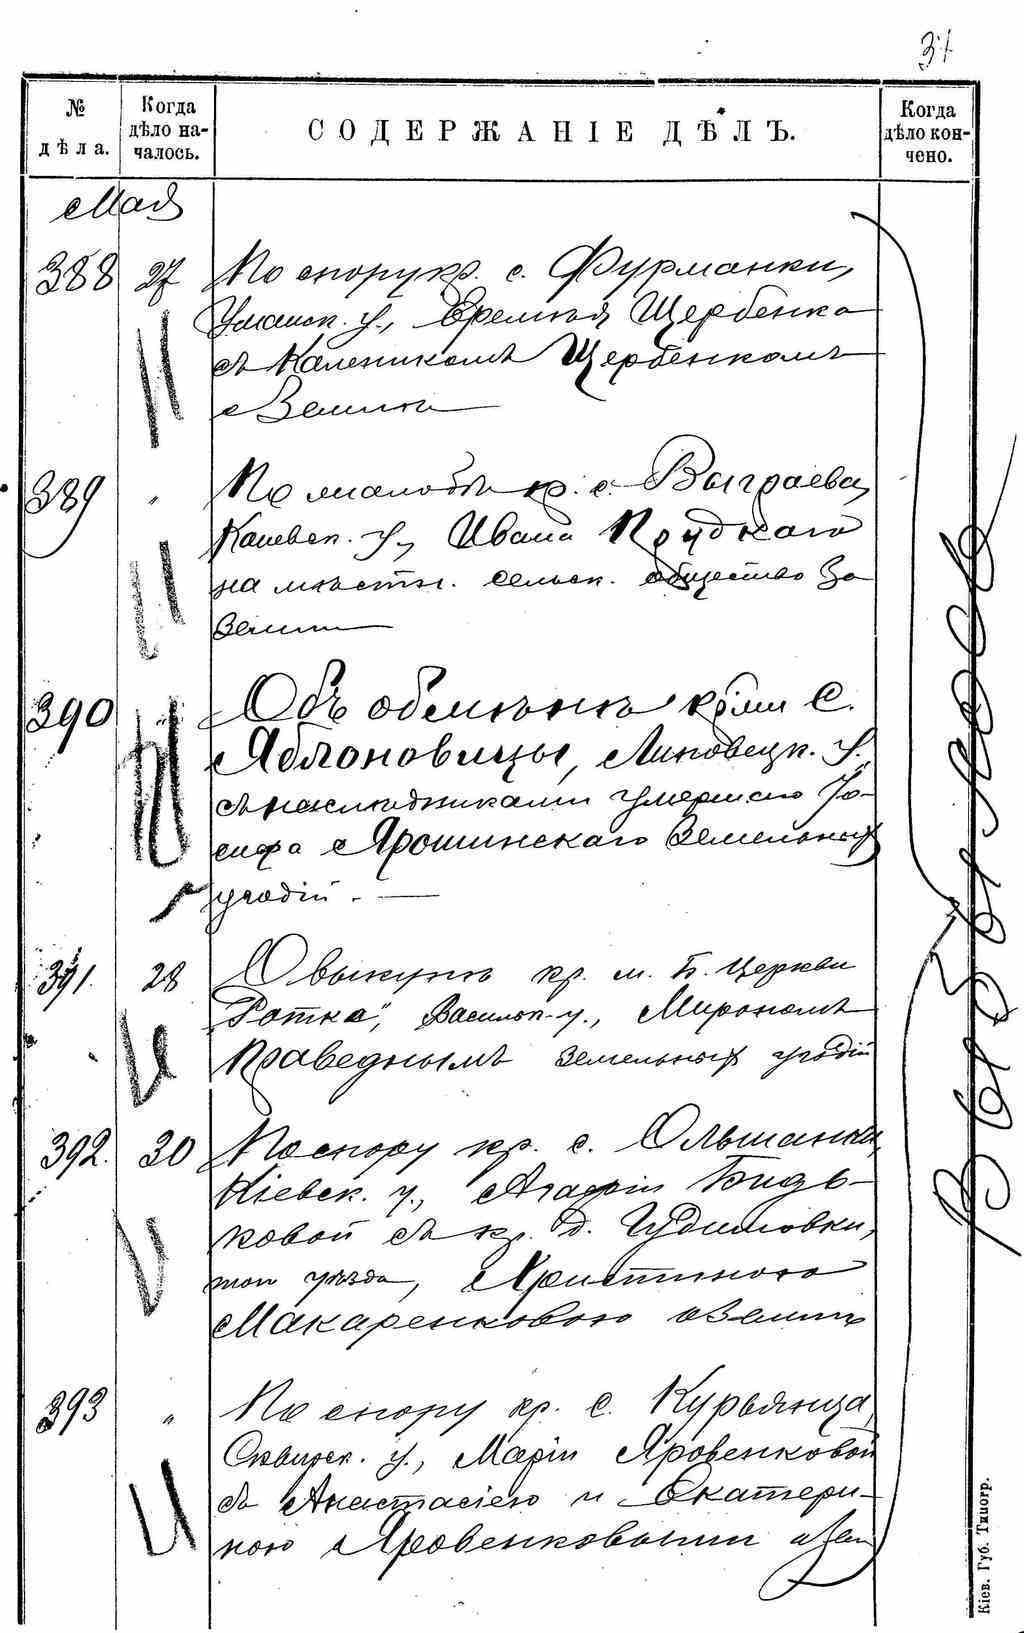 31
№ дѣла.
Когда дѣло началось.
СОДЕРЖАНІЕ ДѢЛЪ.
Когда дѣло кончено.
Мая
388 27 По спору кр. с. Фурманки,
Уманск. у., Еремѣя Щербенка
съ Каленикомъ Щербенкомъ
о земли
389 " По жалобѣ кр. с. Выграева,
Каневск. у., Ивана Прудкаго
на мѣстн. сельск. общество за
земли
390 Объ обмѣнѣ кр-ми с.
Яблоновицы, Липовецк. у.
съ наслѣдниками умершаго Іо-
сифа Ярошинскаго земельных
угодій. —
391. 28 О выкупѣ кр. м. Б. Церкви
"Ротка", Васильк. у., Мирономъ
Праведнымъ земельных угодій
392. 30 По спору кр. с. Ольшанки,
Кіевск. у., Агафіи Бидь-
ковой съ кр. д. Чудиловки,
той уѣзда, Христиною
Макаренковою о земли
393 " По спору кр. с. Курьянца,
Сквирск. у., Маріи Яровенковой
съ Анастасіею и Екатери-
ною Яровенковыми о зем
Кіев. Губ. Типогр.